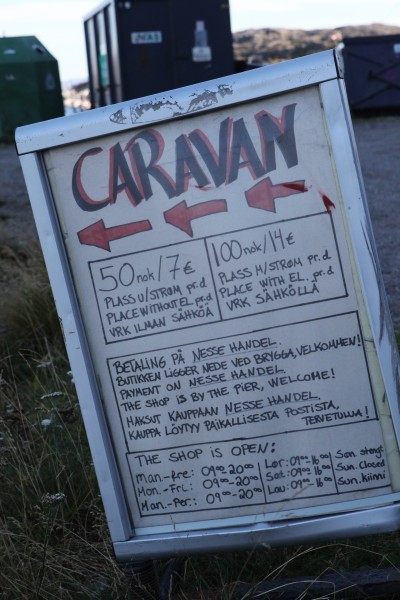 CARAVAN
50 nok/7€
PLASS U/STRØM pr.d
PLACE WITHOUT EL. pr.d
VRK ILMAN SÄHKÖÄ
100 nok/14€
PLASS M/STRØM pr.d
PLACE WITH EL. pr.d
VRK SÄHKÖLLÄ
BETALING PÅ NESSE HANDEL.
BUTIKKEN LIGGER NEDE VED BRYGGA, VELKOMMEN!
PAYMENT ON NESSE HANDEL
THE SHOP IS BY THE PIER, WELCOME!
MAKSUT KAUPPAAN NESSE HANDEL
KAUPPA LÖYTYY PAIKALLISESTA POSTISTA,
TERVETULUA!
THE SHOP IS OPEN:
Man.-Fre.: 09⁰⁰-20⁰⁰
Mon.-Fri.: 09⁰⁰-20⁰⁰
Mon.-Per.: 09⁰⁰-20⁰⁰
Lør: 09⁰⁰-16⁰⁰
Sat: 09⁰⁰-16⁰⁰
Lau: 09⁰⁰-16⁰⁰
Søn. stengt
Sun. Closed
Sun. Kiinni